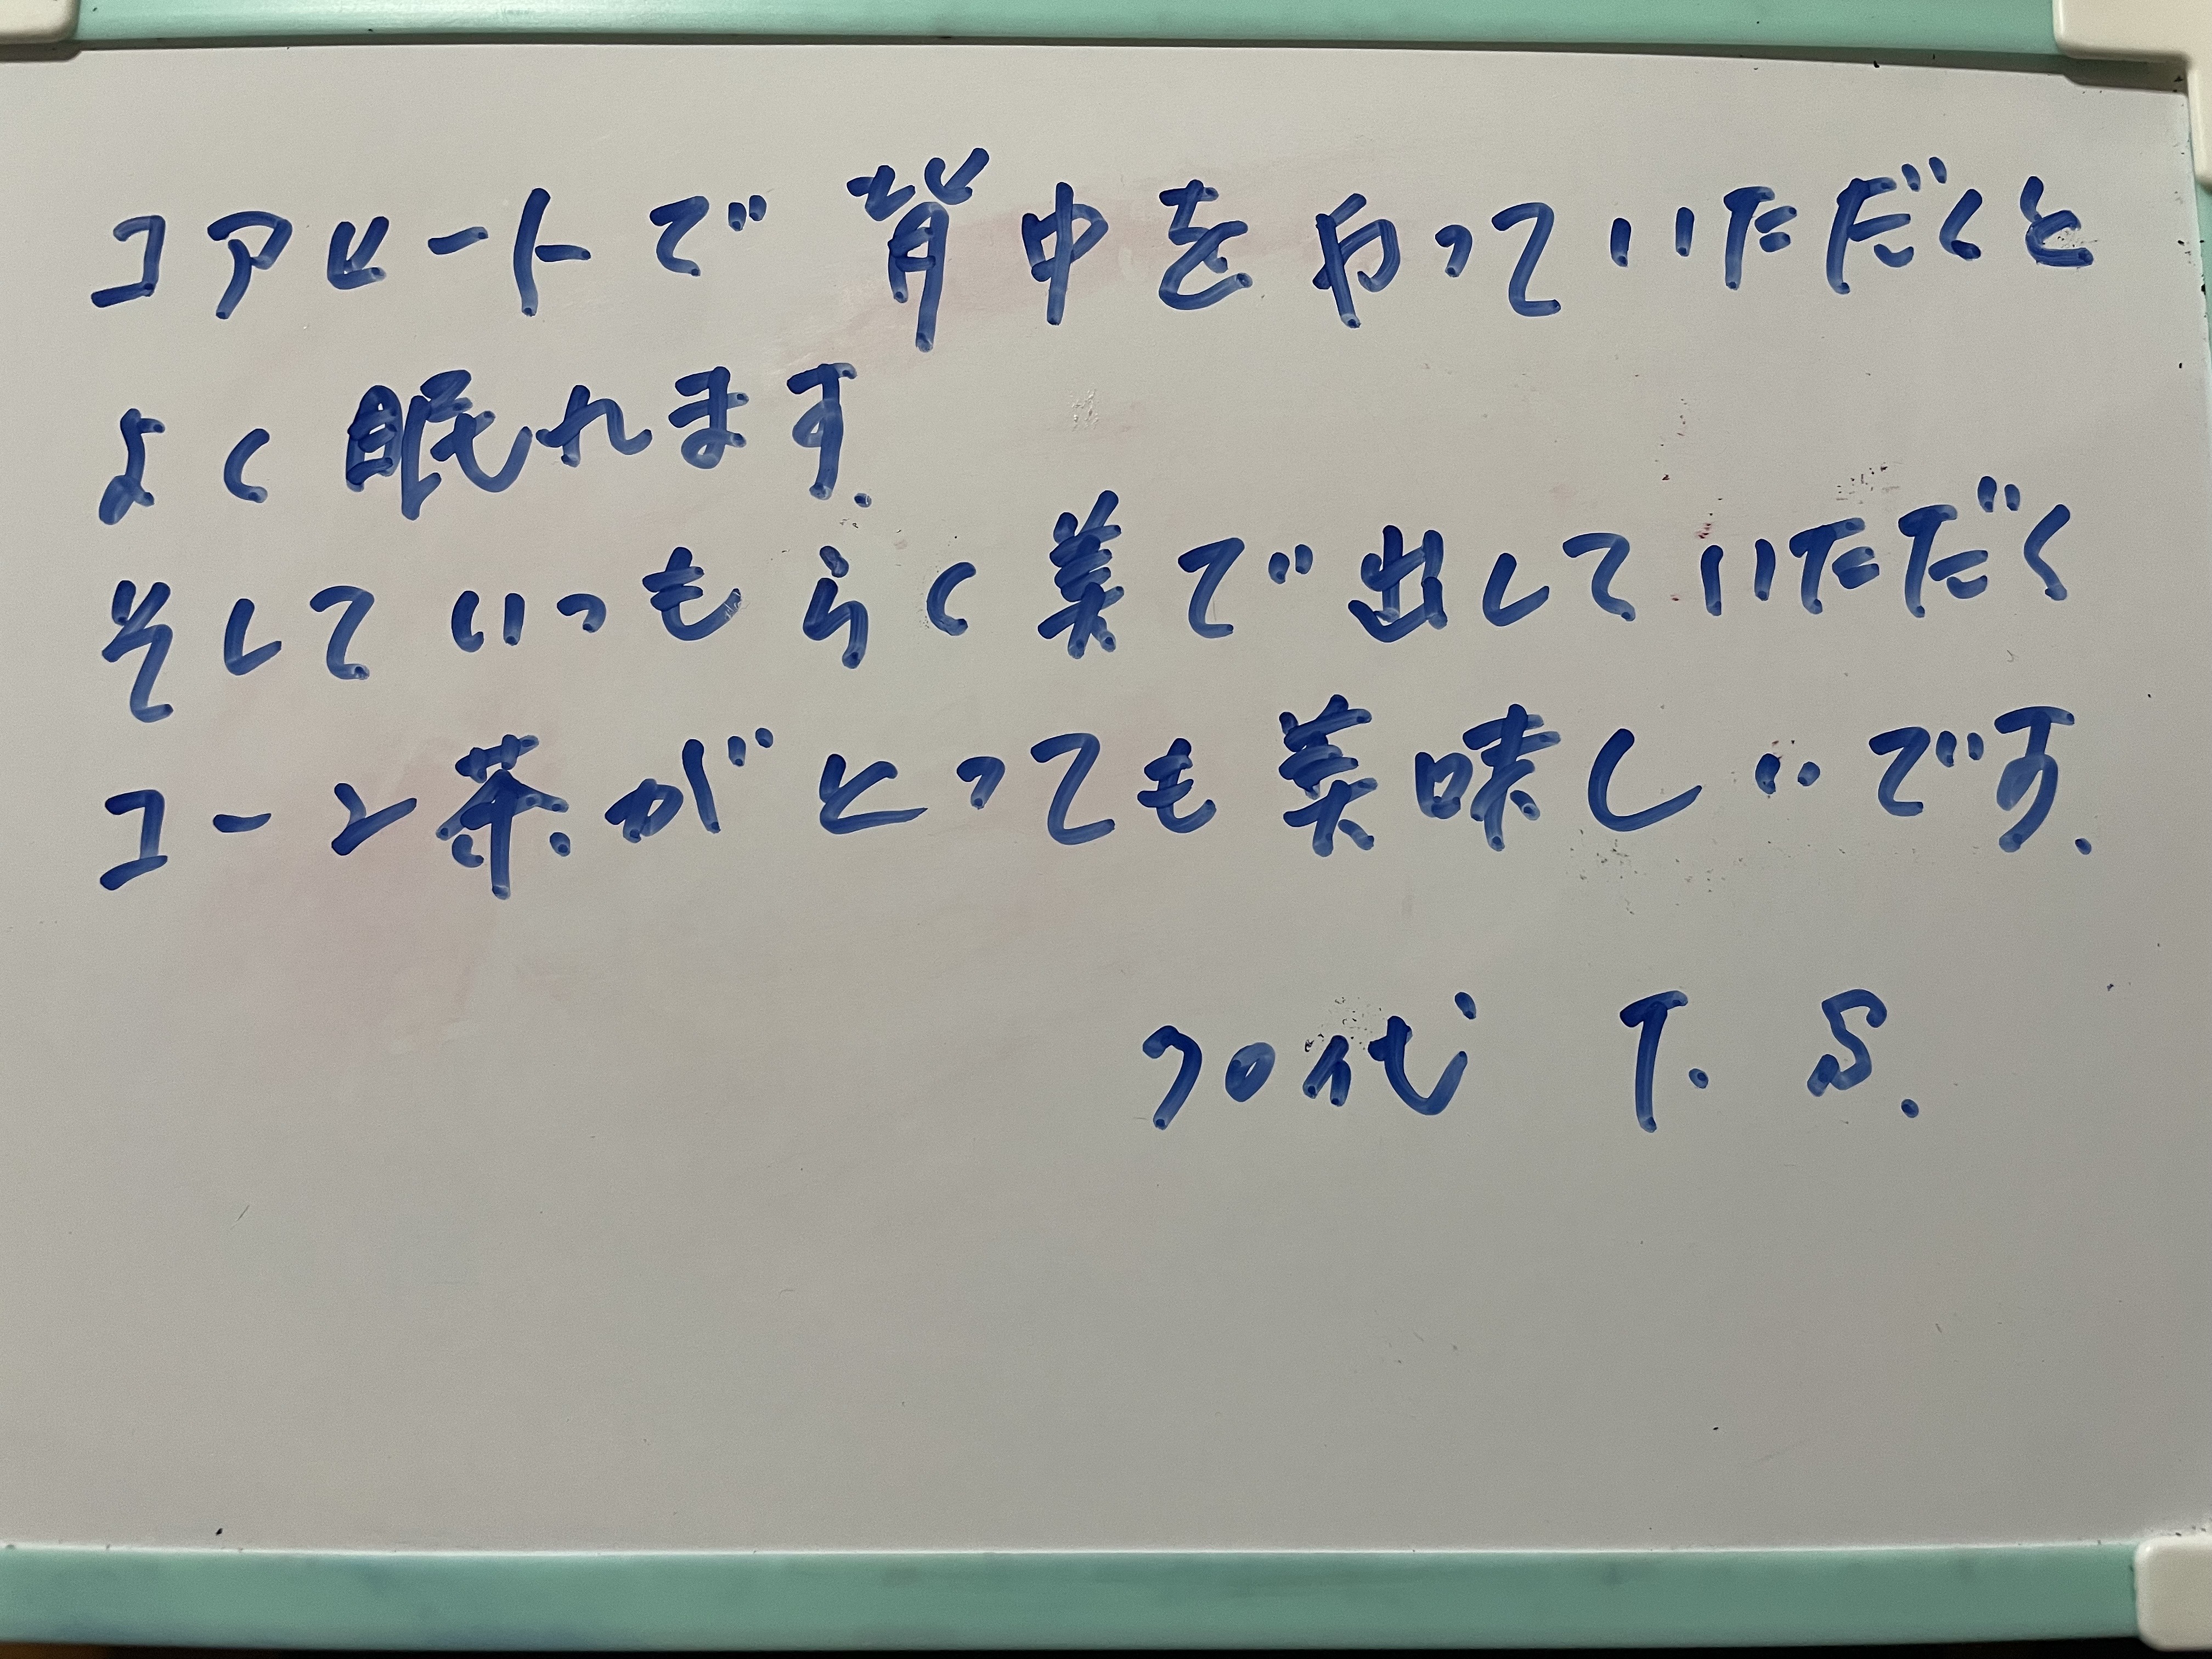 コアヒートで背中をやっていただくと
よく眠れます.
そしていつもらく美で出していただく
コーン茶がとっても美味しいです.
70代 T. S.